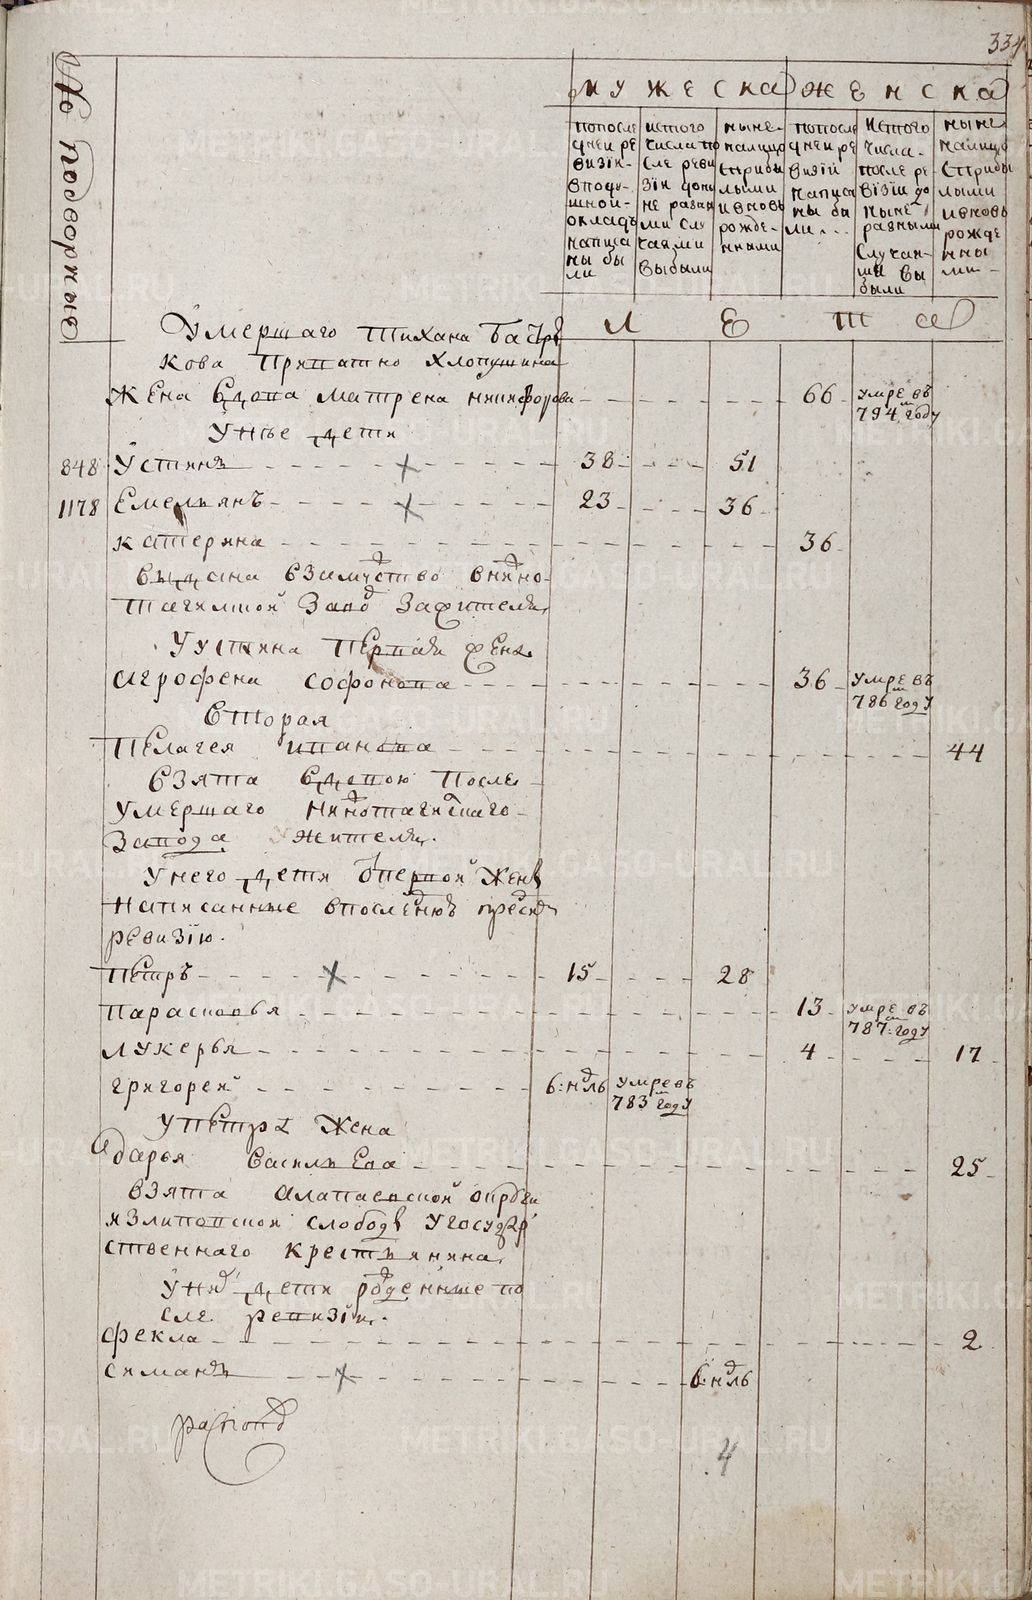 334
No подворные
мужеска женска
попосле
дней ре
визiи
вподу-
шной
окладъ
написа
ны бы
ли
истого
числа по
сле реви
зiи доны
не разны
ми слу
чаями
выбыли
ныне
налицо
сприбы
лыми
ивновь
рожде-
нными
попосле
дней ре
визiй
написа
ны бы
ли...
истого
числа-
после ре-
вiзiи до
ныне
разными
случаи-
ми вы
были
ныне
налицо
сприбы
лыми
ивновь
рожде
нны
ми-
лета
Умершаго Тихана Бастры
кова Припатно Хлопушина
Жена вдова матрена никифорова 66 умре въ
794м году
Унъе дети
848 Устинъ 38 51
1178 Емельянъ 23 36
катерина 36
выдана взамужство внижно-
тагилской завод зажителя
Уустина первая жена
агрофена софонова 36 умре въ
786м году
вторая
пелагея иванова 44
взята вдовою после
умершаго нижнотагилскаго
завода жителя.
Унего дети отпервой жены
написанные впоследнюю пред сим
ревизiю.
петръ 15 28
парасковья 13 умре въ
787м: году
лукерья 4 17
григорей 6: ндль умре въ
783м году
упетра жена
дарья васильева 25
взята алапаевской округи
изяиповской слободы угосудар
ственнаго крестьянина
Уних дети рожденные по
сле ревизiи.
фекла 2
симанъ 6: ндль
4